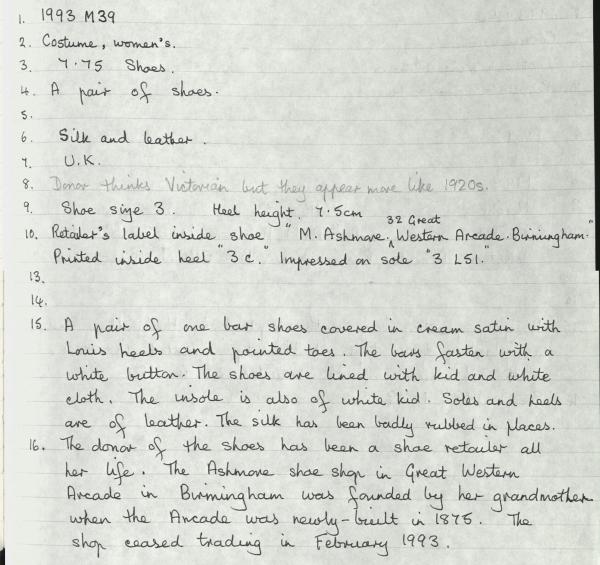 1. 1993 M39
2. Costume, women's.
3. 7.75 Shoes.
4. A pair of shoes.
5.
6. Silk and leather.
7. U.K.
8. Donor thinks Victorian but they appear more like 1920s.
9. Shoe size 3. Heel height. 7.5cm
32 Great
10. Retailer's label inside shoe "M. Ashmore. Western Arcade. Birmingham."
Printed inside heel "3 c." Impressed on sole "3 L51."
13.
14.
15. A pair of one bar shoes covered in cream satin with
Louis heels and pointed toes. The bars fasten with a
white button. The shoes are lined with kid and white
cloth. The insole is also of white kid. Soles and heels
are of leather. The silk has been badly rubbed in places.
16. The donor of the shoes has been a shoe retailer all
her life. The Ashmore shoe shop in Great Western
Arcade in Birmingham was founded by her grandmother
when the Arcade was newly-built in 1875. The
shop ceased trading in February 1993.